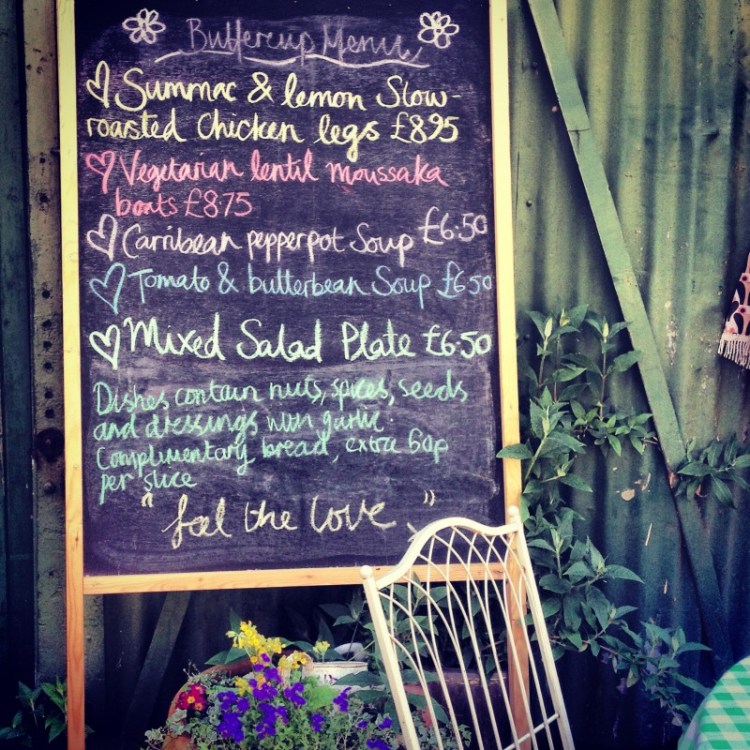 Buttercup Menu
Summac & lemon Slow-
roasted Chicken legs £895
Vegetarian lentil moussaka
boats £875
Carribean pepperpot Soup £6.50
Tomato & butterbean Soup £6.50
Mixed Salad Plate £6.50
Dishes contain nuts, spices, seeds
and dressings with garlic.
Complimentary bread, extra 60p
per slice
"feel the love"